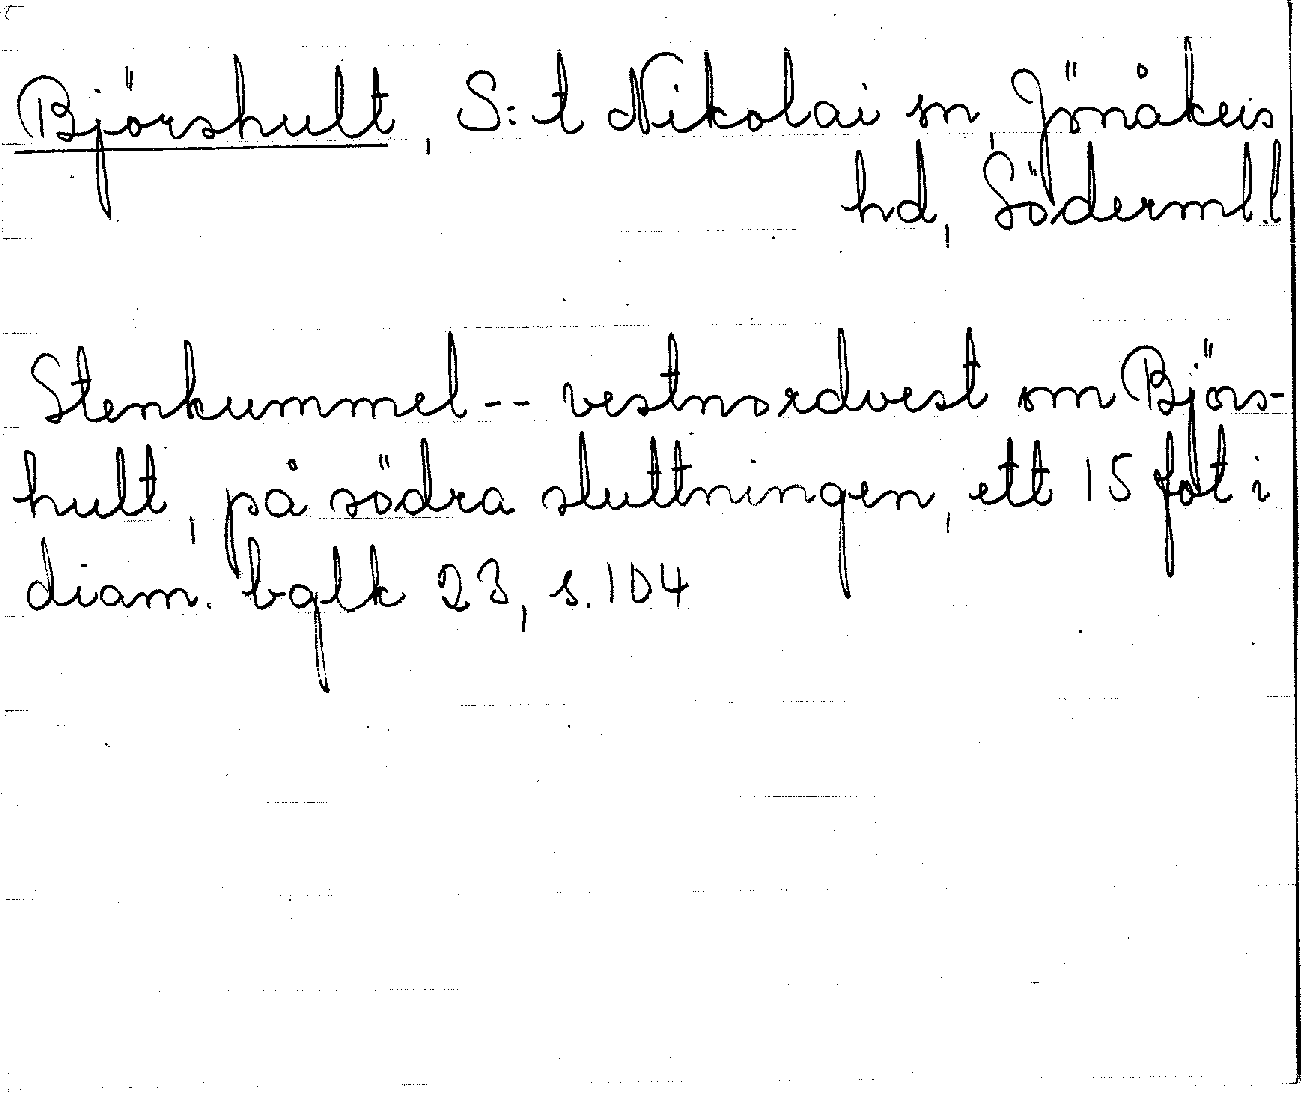 Björshult, S:t Nikolai sn, Jönåkers
hd, Söderml.l
Stenkummel -- vestnordvest om Björs-
hult, på södra sluttningen, ett 15 fot i
diam. bglk 23, s.104